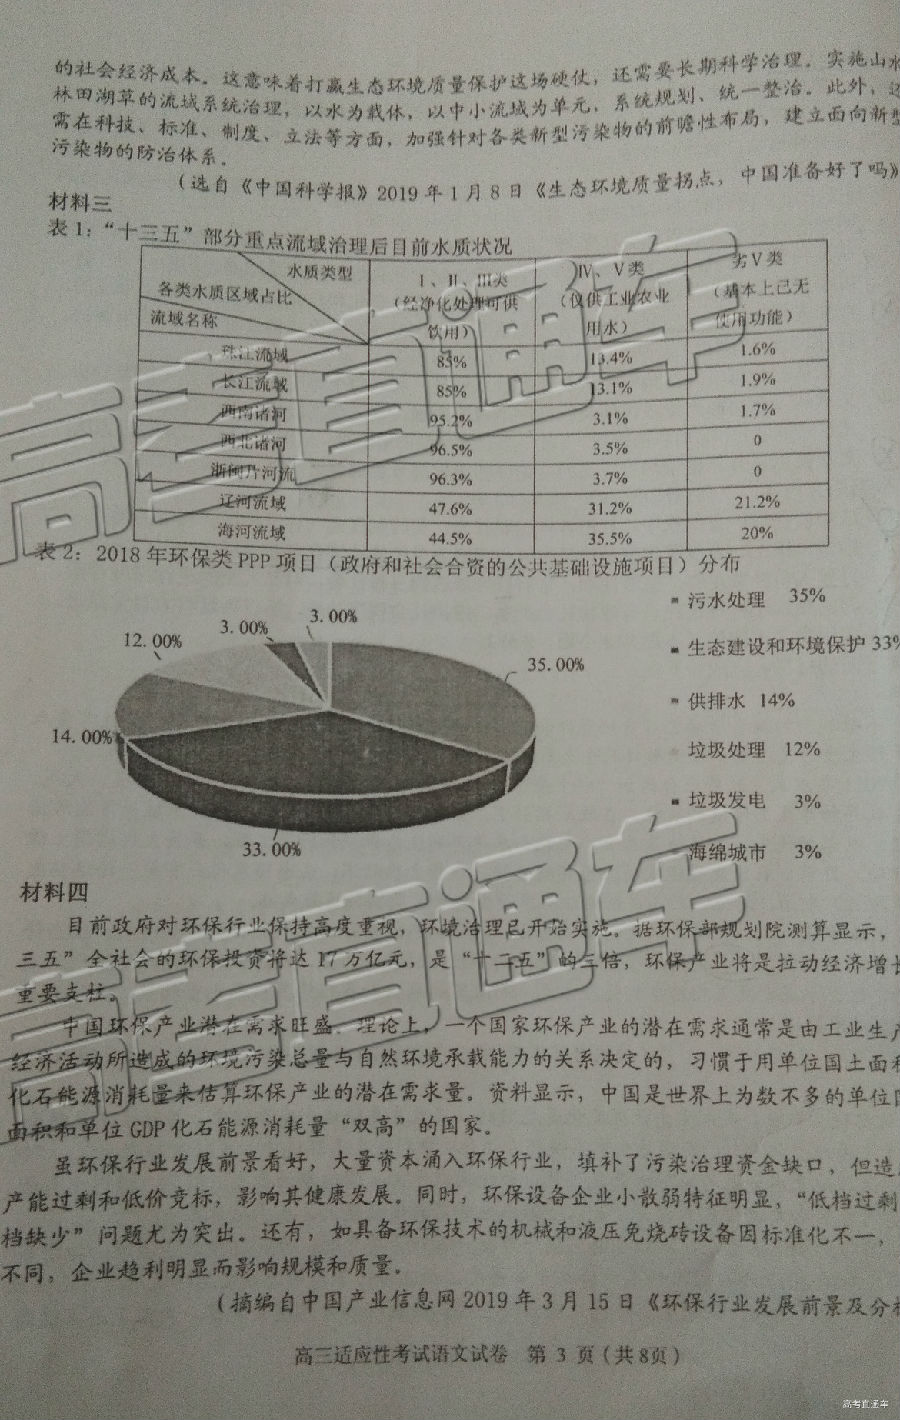 的社会经济成本。这意味着打赢生态环境质量保护这场硬仗，还需要长期科学治理。实施山水
林田湖草的流域系统治理，以水为载体，以中小流域为单元，系统规划、统一整治。此外，还
需在科技、标准、制度、立法等方面，加强针对各类新型污染物的前瞻性布局，建立面向新型
污染物的防治体系。
（选自《中国科学报》2019年1月8日《生态环境质量拐点，中国准备好了吗》
材料三
表1：“十三五”部分重点流域治理后目前水质状况
水质类型
各类水质区域占比
流域名称
Ⅰ、Ⅱ、Ⅲ类
（经净化处理可供
饮用）
Ⅳ、Ⅴ类
（仅供工业农业
用水）
劣Ⅴ类
（基本上已无
使用功能）
珠江流域 85% 13.4% 1.6%
长江流域 85% 13.1% 1.9%
西南诸河 95.2% 3.1% 1.7%
西北诸河 96.5% 3.5% 0
浙闽片河流 96.3% 3.7% 0
辽河流域 47.6% 31.2% 21.2%
海河流域 44.5% 35.5% 20%
表2：2018年环保类PPP项目（政府和社会合资的公共基础设施项目）分布
3.00%
3.00%
12.00%
35.00%
14.00%
33.00%
污水处理 35%
生态建设和环境保护 33%
供排水 14%
垃圾处理 12%
垃圾发电 3%
海绵城市 3%
材料四
目前政府对环保行业保持高度重视，环境治理已开始实施。据环保部规划院测算显示，
三五”全社会的环保投资将达17万亿元，是“十二五”的三倍，环保产业将是拉动经济增长
重要支柱。
中国环保产业潜在需求旺盛。理论上，一个国家环保产业的潜在需求通常是由工业生产
经济活动所造成的环境污染总量与自然环境承载能力的关系决定的，习惯于用单位国土面积
化石能源消耗量来估算环保产业的潜在需求量。资料显示，中国是世界上为数不多的单位国
面积和单位GDP化石能源消耗量“双高”的国家。
虽环保行业发展前景看好，大量资本涌入环保行业，填补了污染治理资金缺口，但造成
产能过剩和低价竞标，影响其健康发展。同时，环保设备企业小散弱特征明显，“低档过剩
档缺少”问题尤为突出。还有，如具备环保技术的机械和液压免烧砖设备因标准化不一，
不同，企业趋利明显而影响规模和质量。
（摘编自中国产业信息网2019年3月15日《环保行业发展前景及分析
高三适应性考试语文试卷 第3页（共8页）
高考直通车
高考直通车
高考直通车